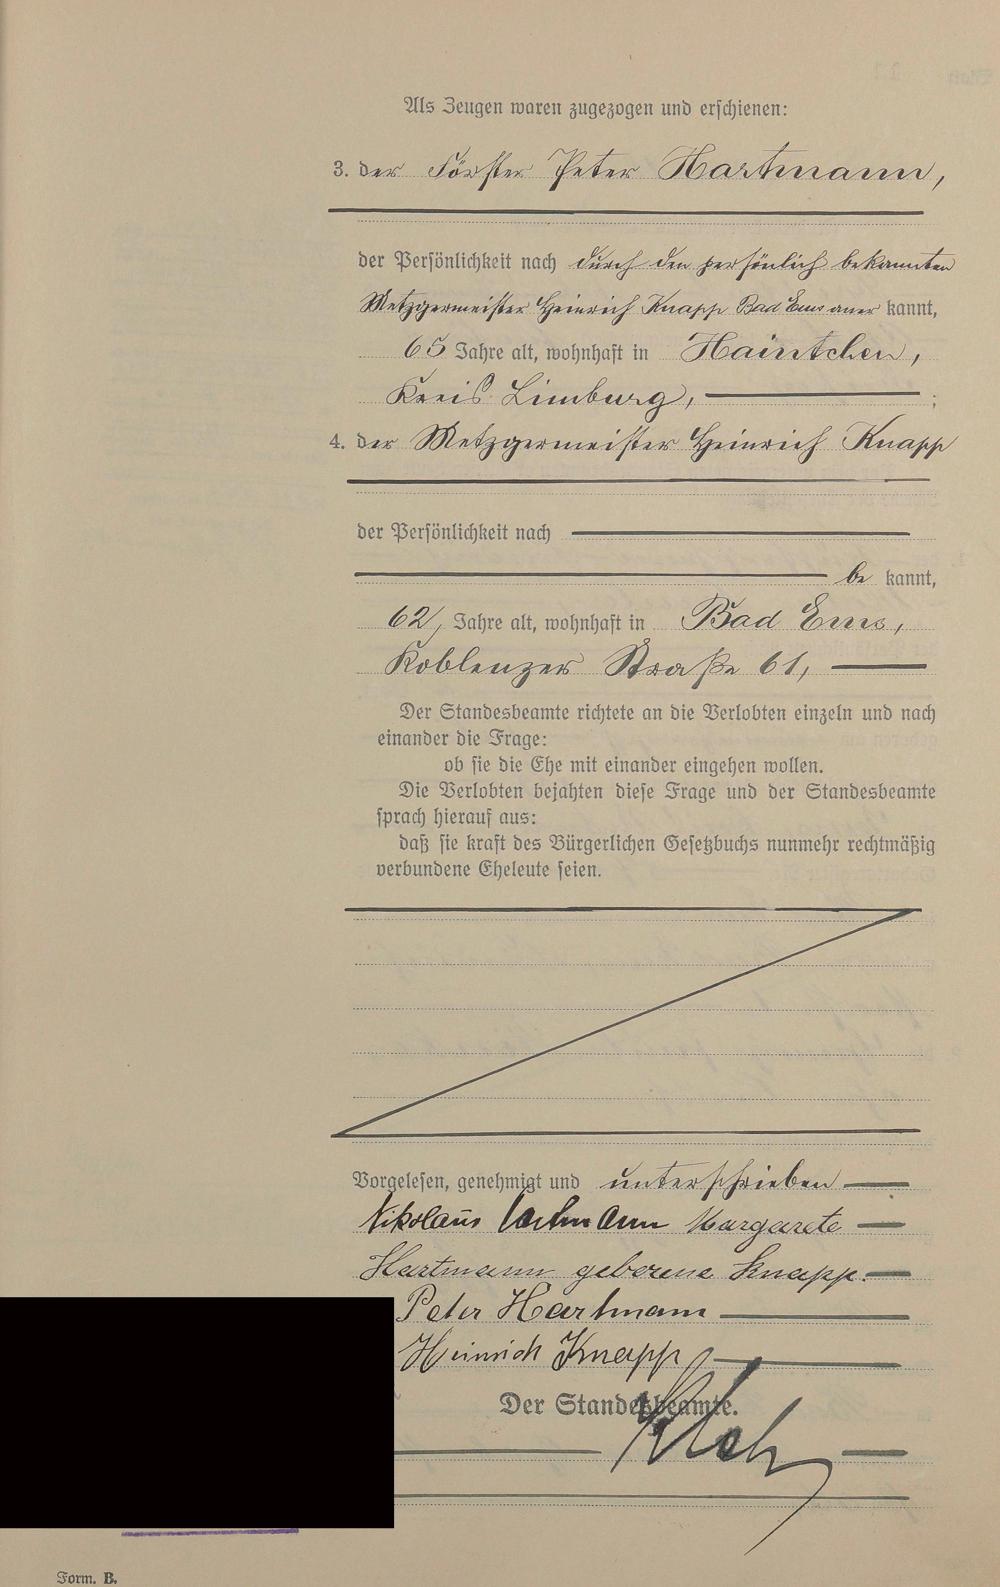 Als Zeugen waren zugezogen und erschienen:
3. der Förster Peter Hartmann,
der Persönlichkeit nach durch den persönlich bekannten
Metzgermeister Heinrich Knapp Bad Ems aner kannt,
65 Jahre alt, wohnhaft in Haintchen,
Kreis Limburg, ;
4. der Metzgermeister Heinrich Knapp
der Persönlichkeit nach
be kannt,
62, Jahre alt, wohnhaft in Bad Ems,
Koblenzer Straße 61,
Der Standesbeamte richtete an die Verlobten einzeln und nach
einander die Frage:
ob sie die Ehe mit einander eingehen wollen.
Die Verlobten bejahten diese Frage und der Standesbeamte
sprach hierauf aus:
daß sie kraft des Bürgerlichen Gesetzbuchs nunmehr rechtmäßig
verbundene Eheleute seien.
Vorgelesen, genehmigt und unterschrieben
Nikolaus Hartmann Margarete
Hartmann geborene Knapp.
Peter Hartmann
Heinrich Knapp
Der Standesbeamte.
Form. B.